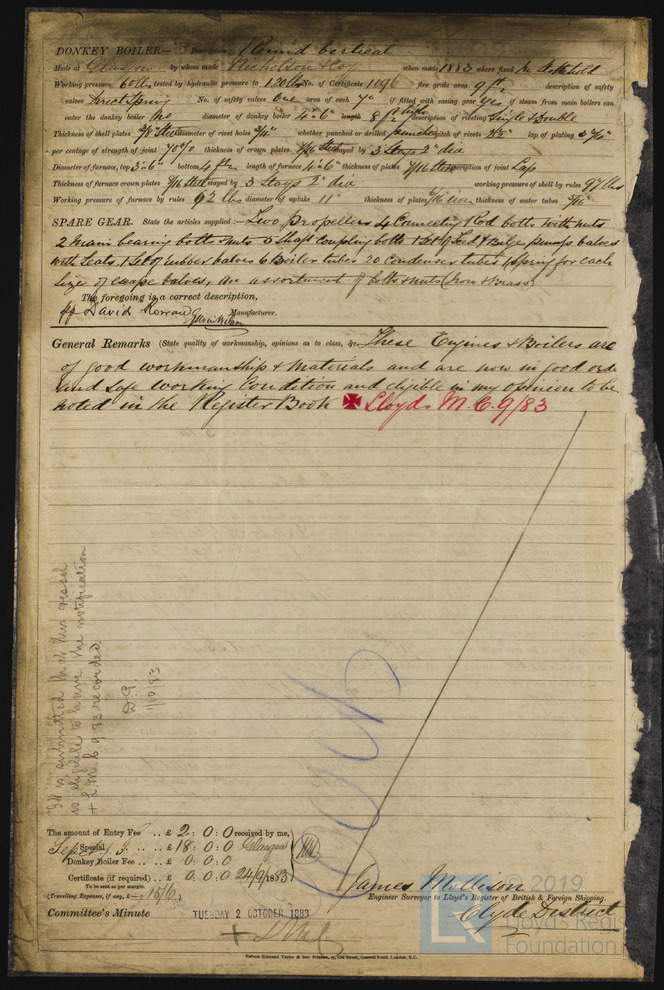 DONKEY BOILER— Description Round Vertical
Made at Glasgow by whom made Nicholson & Coy when made 1883 where fixed In Stokehold
Working pressure 60 lbs tested by hydraulic pressure to 120 lbs No. of Certificate 1096 fire grate area 9 ft description of safety
valves Direct Spring No. of safety valves One area of each 7" if fitted with easing gear Yes if steam from main boilers can
enter the donkey boiler No diameter of donkey boiler 4'-6" length 8 ft description of riveting Single & Double
Thickness of shell plates 3/8 Steel diameter of rivet holes whether punched or drilled punched pitch of rivets lap of plating
per centage of strength of joint 70% thickness of crown plates 7/16 Steel stayed by 3 Stays 2" dia
Diameter of furnace, top 3'.6" bottom 4 ft length of furnace 4'.6" thickness of plates 7/16 Steel description of joint Lap
Thickness of furnace crown plates 7/16 Steel stayed by 3 Stays 2" dia working pressure of shell by rules 97 lbs
Working pressure of furnace by rules 92 lbs diameter of uptake 11" thickness of plates 7/16 iron thickness of water tubes
SPARE GEAR. State the articles supplied:— Two propellers 4 Connecting Rod bolts with nuts
2 main bearing bolts & nuts 6 Shaft coupling bolts 1 Set of Feed & Bilge pumps valves
with Seats, 1 Set of rubber valves 6 Boiler tubes 20 condenser tubes, 1 Spring for each
size of escape valves, An assortment of bolts & nuts (Iron & Brass)
The foregoing is a correct description,
David Rowan Manufacturer.
General Remarks (State quality of workmanship, opinions as to class, &c. These Engines & Boilers are
of good workmanship & materials and are now in good order
and safe working condition and eligible in my opinion to be
noted in the Register Book ✠ Lloyds M.C. 9/83
It is submitted that this vessel
is eligible to have the notification
+ L.M.C. 9.83 recorded.
1.10.83
The amount of Entry Fee .. £ 2 : 0 : 0 received by me,
Special .. £ 18 : 0 : 0 Glasgow
Donkey Boiler Fee .. £ 0 : 0 : 0
Certificate (if required) .. £ 0 . 0 . 0 24/9/1883
To be sent as per margin.
(Travelling Expenses, if any, £ 15/6)
James Mollison
Engineer Surveyor to Lloyd's Register of British & Foreign Shipping.
Clyde District
Committee's Minute TUESDAY 2 OCTOBER 1883
© 2019
Lloyd's Register
Foundation